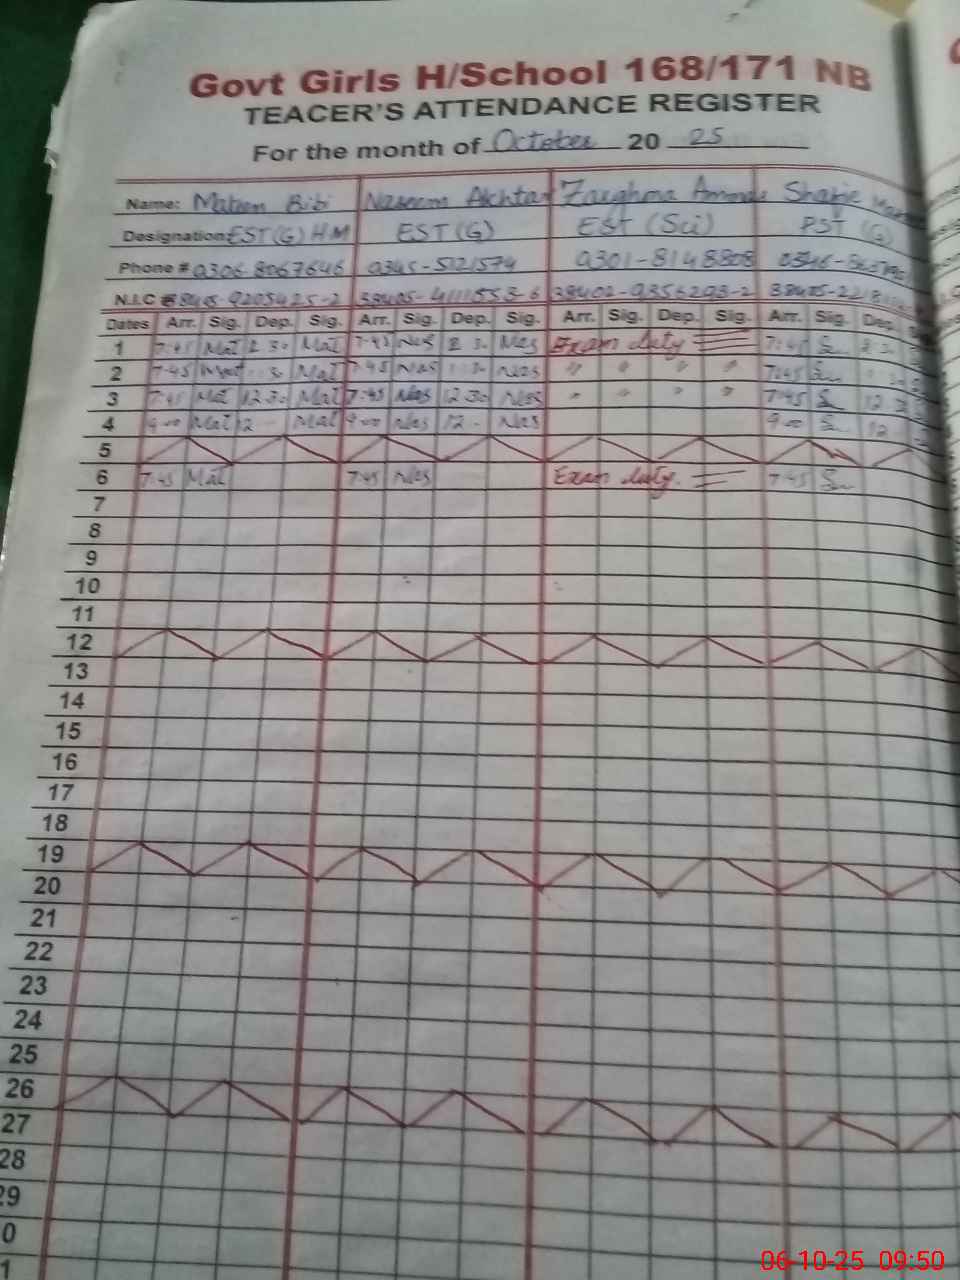 Govt Girls H/School 168/171 NB
TEACER'S ATTENDANCE REGISTER
For the month of October 20 25
Name: Bibi Naseem Akhtar Zarghma
Designation EST(G) HM EST(G) EST (Sci) PST (G)
Phone # 0306-8067646 0345-5121574 0301-8148808
N.I.C # 38405-9205425-2 38405-4111553-6 38402-9356293-2
Dates Arr. Sig. Dep. Sig. Arr. Sig. Dep. Sig. Arr. Sig. Dep. Sig. Arr. Sig. Dep.
1 7:45 Mat Mat 7:45 Nas Nas Exam duty 7:45
2 7:45 Mat Mat 7:45 Nas Nas " " " " 7:45
3 7:45 Mat 12 30 Mat 7:45 Nas 12 30 Nas " " " " 7:45 12
4 9-00 Mat 12 - Mat 9-00 Nas 12 - Nas 9-00 12
5
6 7:45 Mat 7:45 Nas Exam duty. 7:45
7
8
9
10
11
12
13
14
15
16
17
18
19
20
21
22
23
24
25
26
27
28
29
0
1
06-10-25 09:50